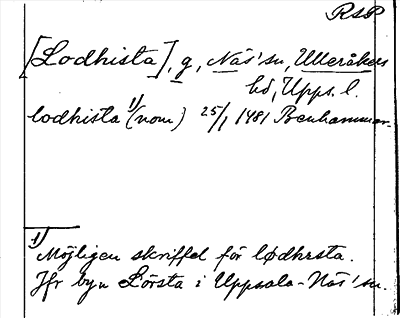 RSP
[Lodhista], g, Näs' sn, Ulleråkers
hd, Upps. l.
lodhista 1) (nom) 25/1 1481 Benhammar.
1) Möjligen skriffel för lødhersta.
Jfr byn Lörsta i Uppsala-Näs' sn.